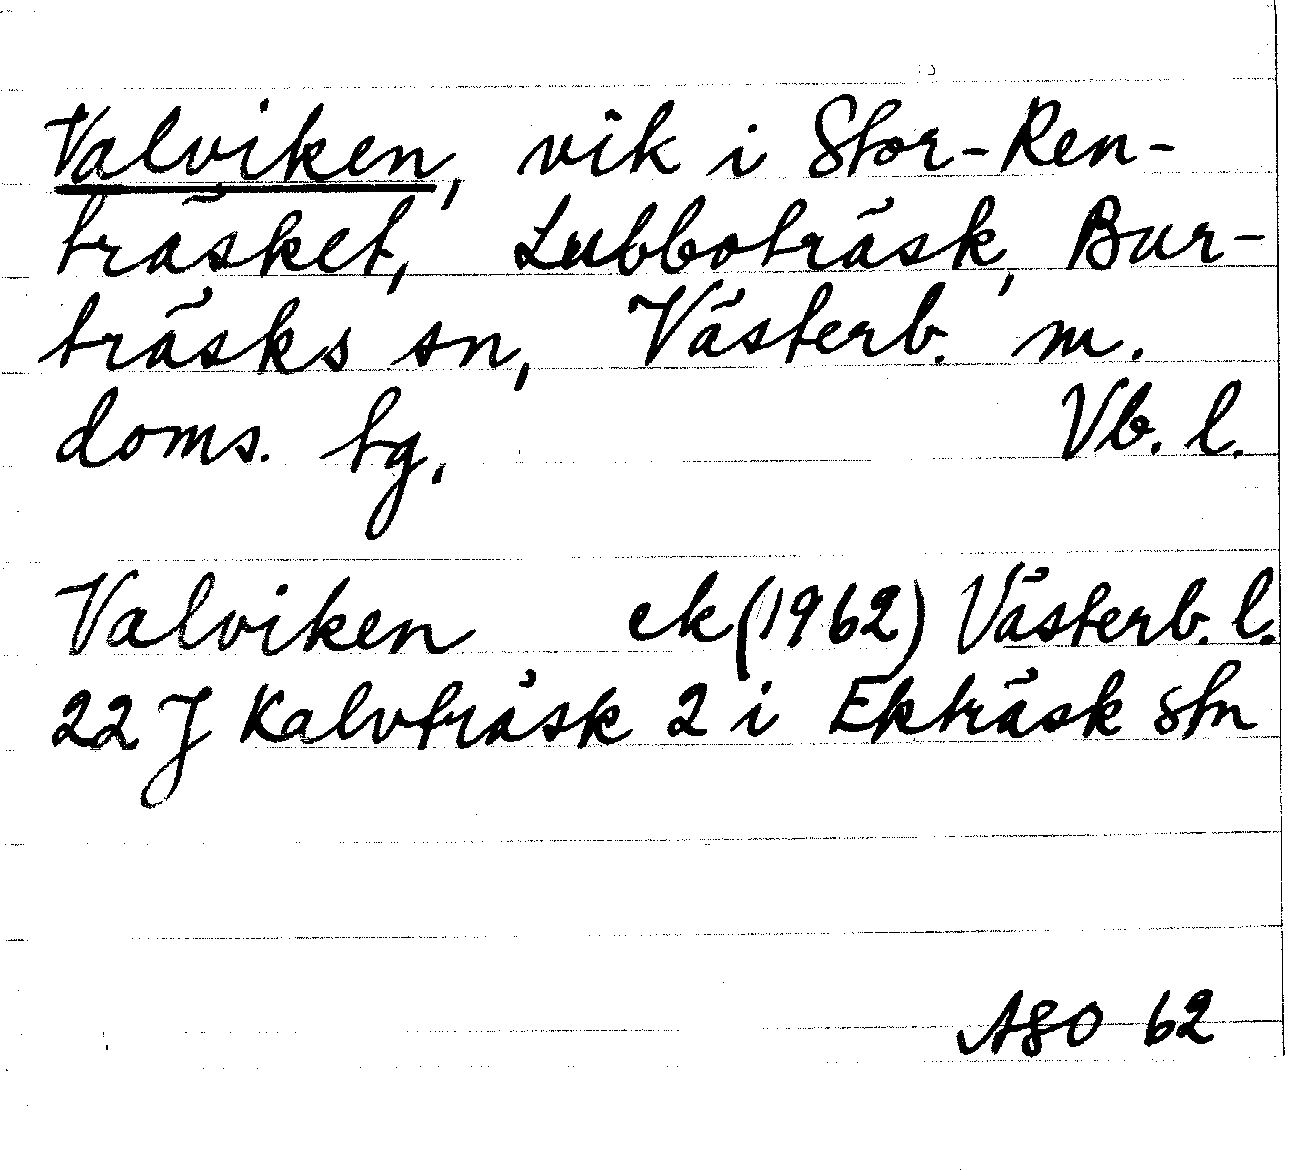 Valviken, vik i Stor-Ren-
träsket, Lubboträsk, Bur-
träsks sn, Västerb. m.
doms. tg. Vb. l.
Valviken ek (1962) Västerb. l.
22 J Kalvträsk 2 i Ekträsk stn
ASO 62